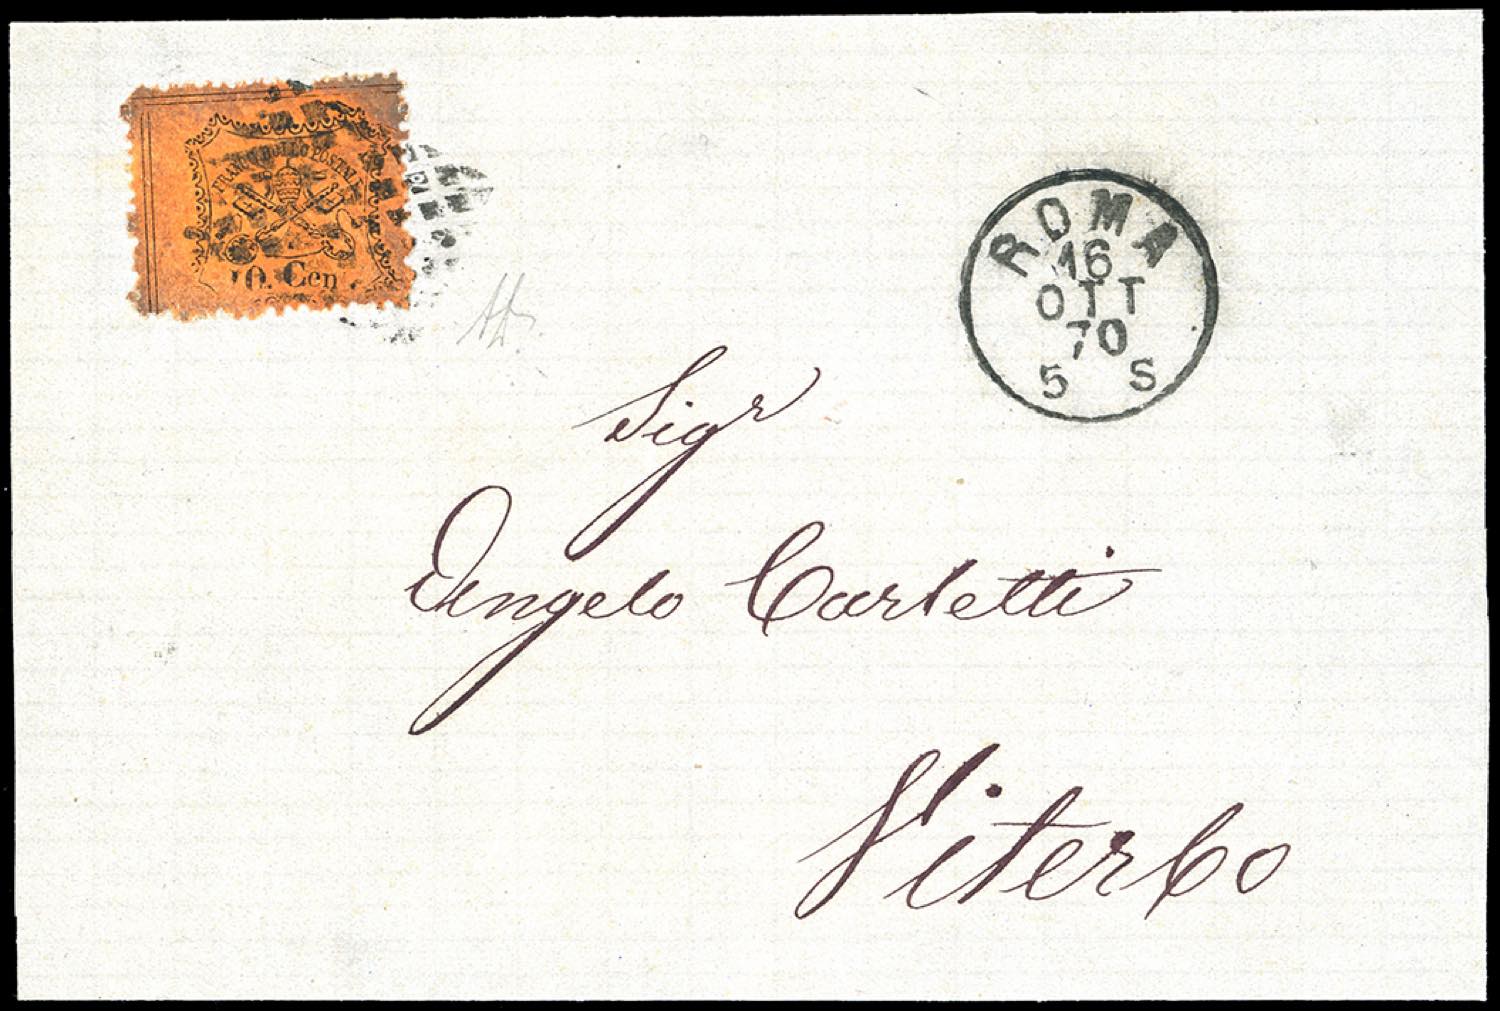 FRANCO BOLLO POSTALE
10. Cen
ROMA
16
OTT
70
5 S
Sigr
Angelo Carletti
Viterbo